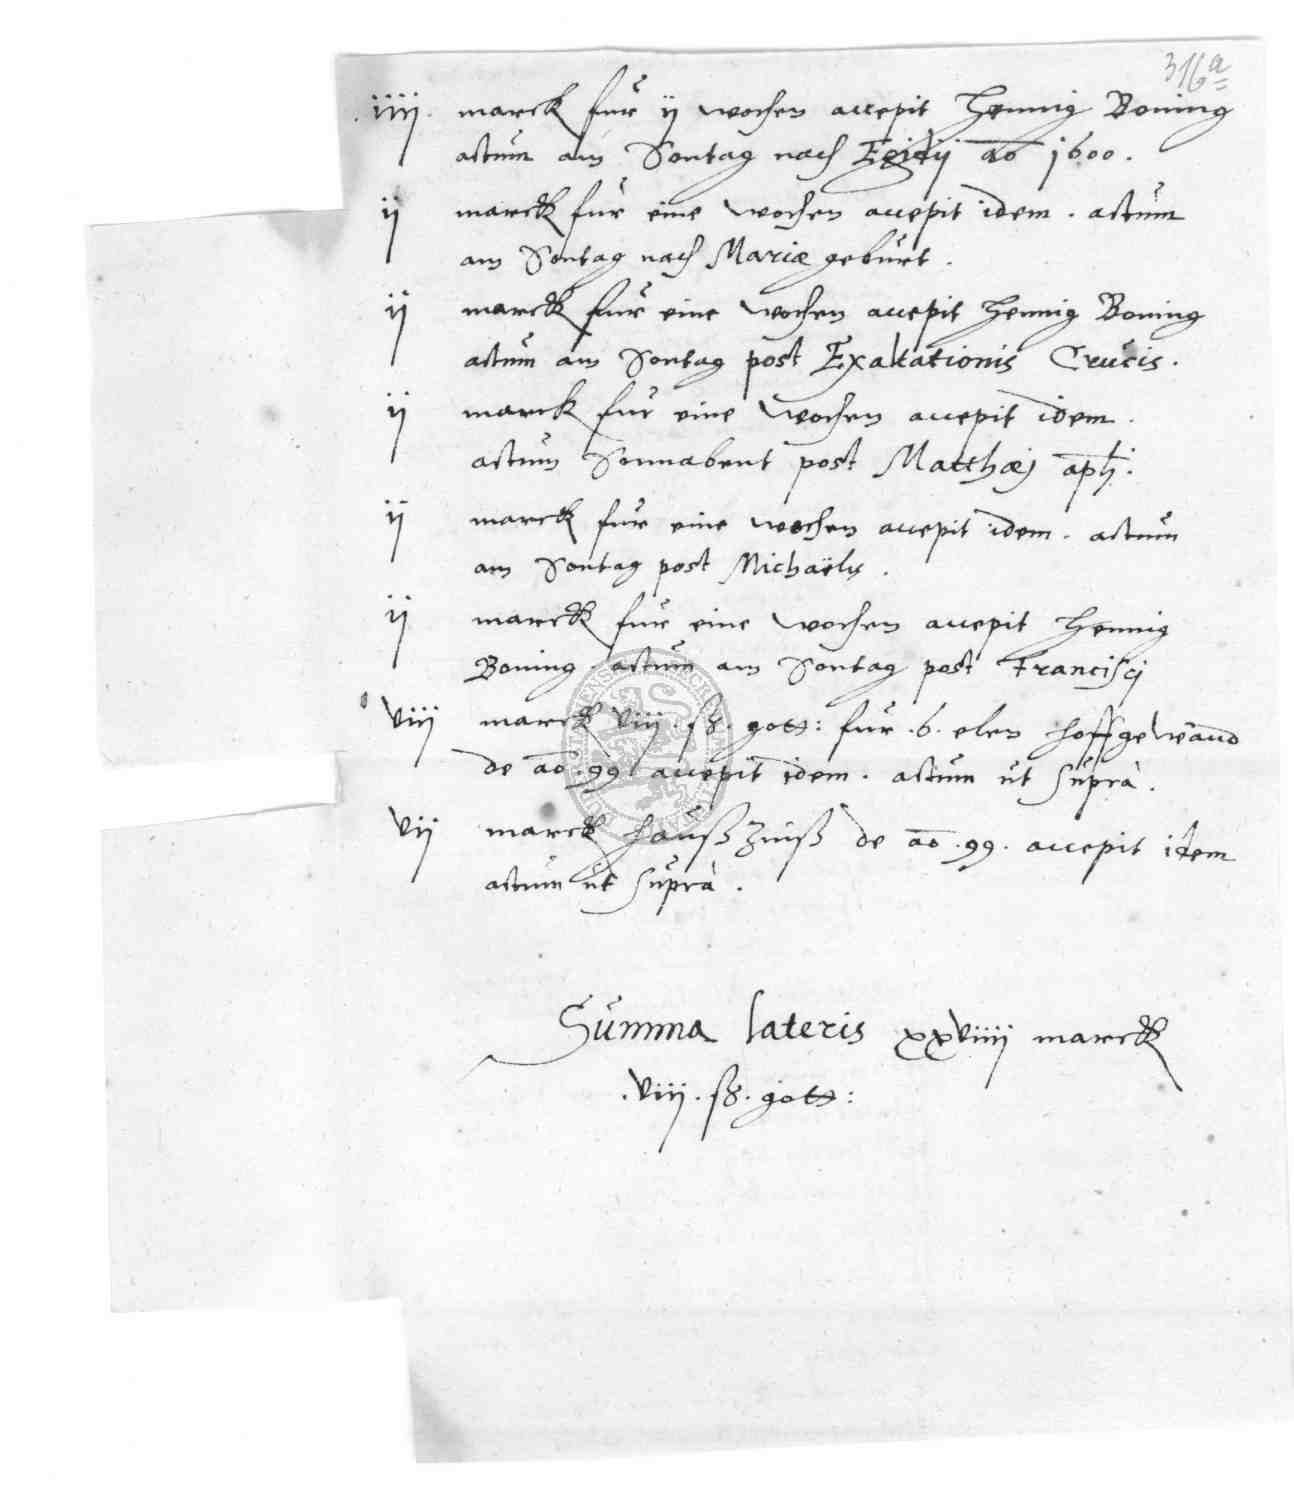 316a
iiij marck fur ij wochen accepit Hennig Boning
actum am Sontag nach Egidij ao 1600.
ij marck fur eine wochen accepit idem. actum
am Sontag nach Mariæ geburt.
ij marck fur eine wochen accepit Hennig Boning
actum am Sontag post Exaltationis Crucis.
ij marck fur eine wochen accepit idem.
actum Sonnabent post Matthæj apli.
ij marck fur eine wochen accepit idem. actum
am Sontag post Michaëlis.
ij marck fur eine wochen accepit Hennig
Boning. actum am Sontag post Francisci
viij marck viij. ß. gott: fur .6. elen hoffgewand
de ao .99 accepit idem. actum ut suprà.
vij marck haußzinß de ao .99. accepit idem
actum ut suprà.
Summa lateris xxviiij marck
.viij. ß. gott: